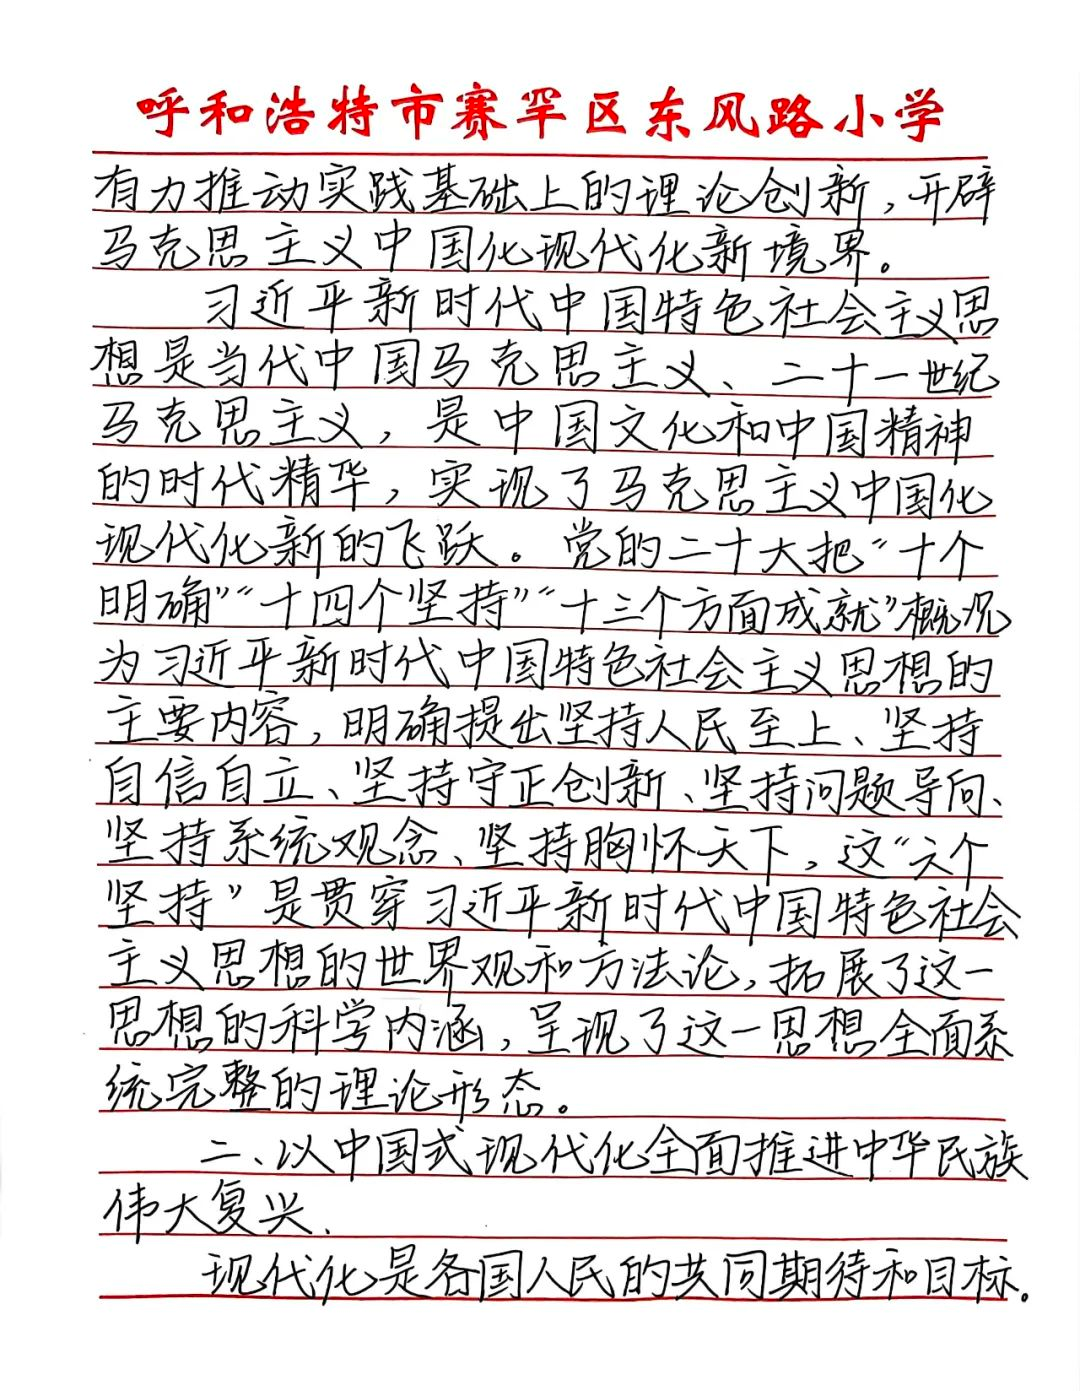 呼和浩特市赛罕区东风路小学
有力推动实践基础上的理论创新，开辟
马克思主义中国化现代化新境界。
习近平新时代中国特色社会主义思
想是当代中国马克思主义、二十一世纪
马克思主义，是中国文化和中国精神
的时代精华，实现了马克思主义中国化
现代化新的飞跃。党的二十大把“十个
明确”“十四个坚持”“十三个方面成就”概况
为习近平新时代中国特色社会主义思想的
主要内容，明确提出坚持人民至上、坚持
自信自立、坚持守正创新、坚持问题导向、
坚持系统观念、坚持胸怀天下，这“六个
坚持”是贯穿习近平新时代中国特色社会
主义思想的世界观和方法论，拓展了这一
思想的科学内涵，呈现了这一思想全面系
统完整的理论形态。
二、以中国式现代化全面推进中华民族
伟大复兴、
现代化是各国人民的共同期待和目标。